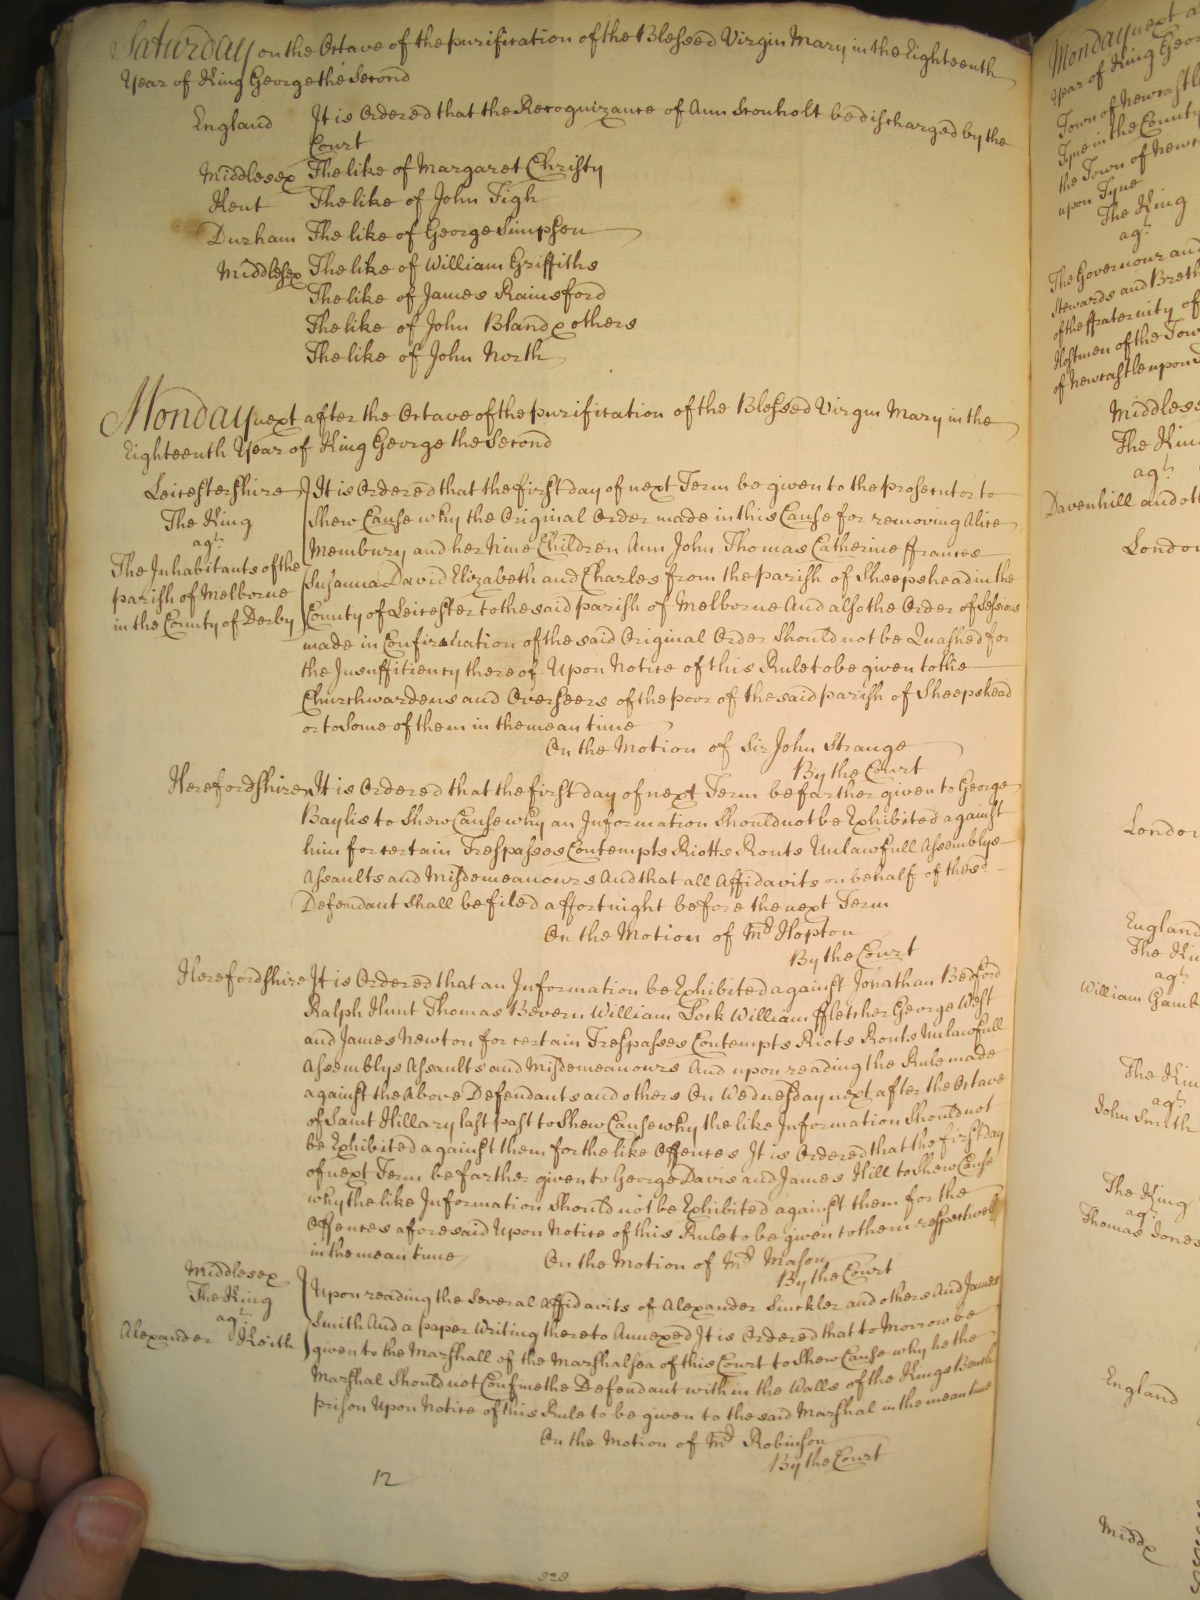 Saturday on the Octave of the purification of the Blessed Virgin Mary in the Eighteenth
Year of King George the Second
England It is Ordered that the Recognizance of Ann Sconholt be discharged by the
Court
Middlesex The like of Margaret Christy
Kent The like of John Tigh
Durham The like of George Simpson
Middlesex The like of William Griffiths
The like of James Rainsford
The like of John Bland & others
The like of John North
Monday next after the Octave of the purification of the Blessed Virgin Mary in the
Eighteenth Year of King George the Second
Leicestershire It is Ordered that the first day of next Term be given to the prosecutor to
The King Shew Cause why the Original Order made in this Cause for removing Alice
agt. Membury and her Nine Children Ann John Thomas Catherine ffrances
The Inhabitants of the Susanna David Elizabeth and Charles from the parish of Sheepshead in the
parish of Melborne County of Leicester to the said parish of Melborne And also the Order of Sessions
in the County of Derby made in Confirmation of the said Original Order should not be Quashed for
the Insufficiency thereof Upon Notice of this Rule to be given to the
Churchwardens and Overseers of the poor of the said parish of Sheepshead
or to Some of them in the mean time
On the Motion of Sir John Strange
By the Court
Herefordshire It is Ordered that the first day of next Term be farther given to George
Baylis to Shew Cause why an Information should not be Exhibited against
him for certain Trespasses Contempts Riotts Routs Unlawfull Assemblys
Assaults and Misdemeanours And that all Affidavits on behalf of the sd.
Defendant shall be filed a ffortnight before the next Term
On the Motion of Mr. Hopton
By the Court
Herefordshire It is Ordered that an Information be Exhibited against Jonathan Bedford
Ralph Hunt Thomas Bevern William Lock William ffletcher George West
and James Newton for certain Trespasses Contempts Riots Routs Unlawfull
Assemblys Assaults and Misdemeanours And upon reading the Rule made
against the Above Defendants and others On Wednesday next after the Octave
of Saint Hillary last past to Shew Cause why the like Information should not
be Exhibited against them for the like Offences It is Ordered that the first day
of next Term be farther given to George Davis and James Hill to Shew Cause
why the like Information should not be Exhibited against them for the
Offences aforesaid Upon Notice of this Rule to be given to them respectively
in the mean time On the Motion of Mr. Mason
By the Court
Middlesex Upon reading the Several Affidavits of Alexander Sinckler and others And James
The King Smith And a paper Writing thereto Annexed It is Ordered that to Morrow be
agt. given to the Marshall of the Marshalsea of this Court to Shew Cause why he the
Alexander Keith Marshal Should not Confine the Defendant within the Walls of the Kings Bench
prison Upon Notice of this Rule to be given to the said Marshal in the mean time
On the Motion of Mr. Robinson
By the Court
12
Monday next
Year of King Geor
Town of Newcastle
Tyne in the County
the Town of Newc
upon Tyne
The King
agt.
The Governour and
Stewards and Breth
of the ffraternity of
Hostmen of the Tow
of Newcastle upon
Middlese
The Kin
agt.
Davenhill and ot
London
London
England
The Kin
agt.
William Gamb
The Kin
agt.
John Smith
The King
agt.
Thomas Jones
England
Middx